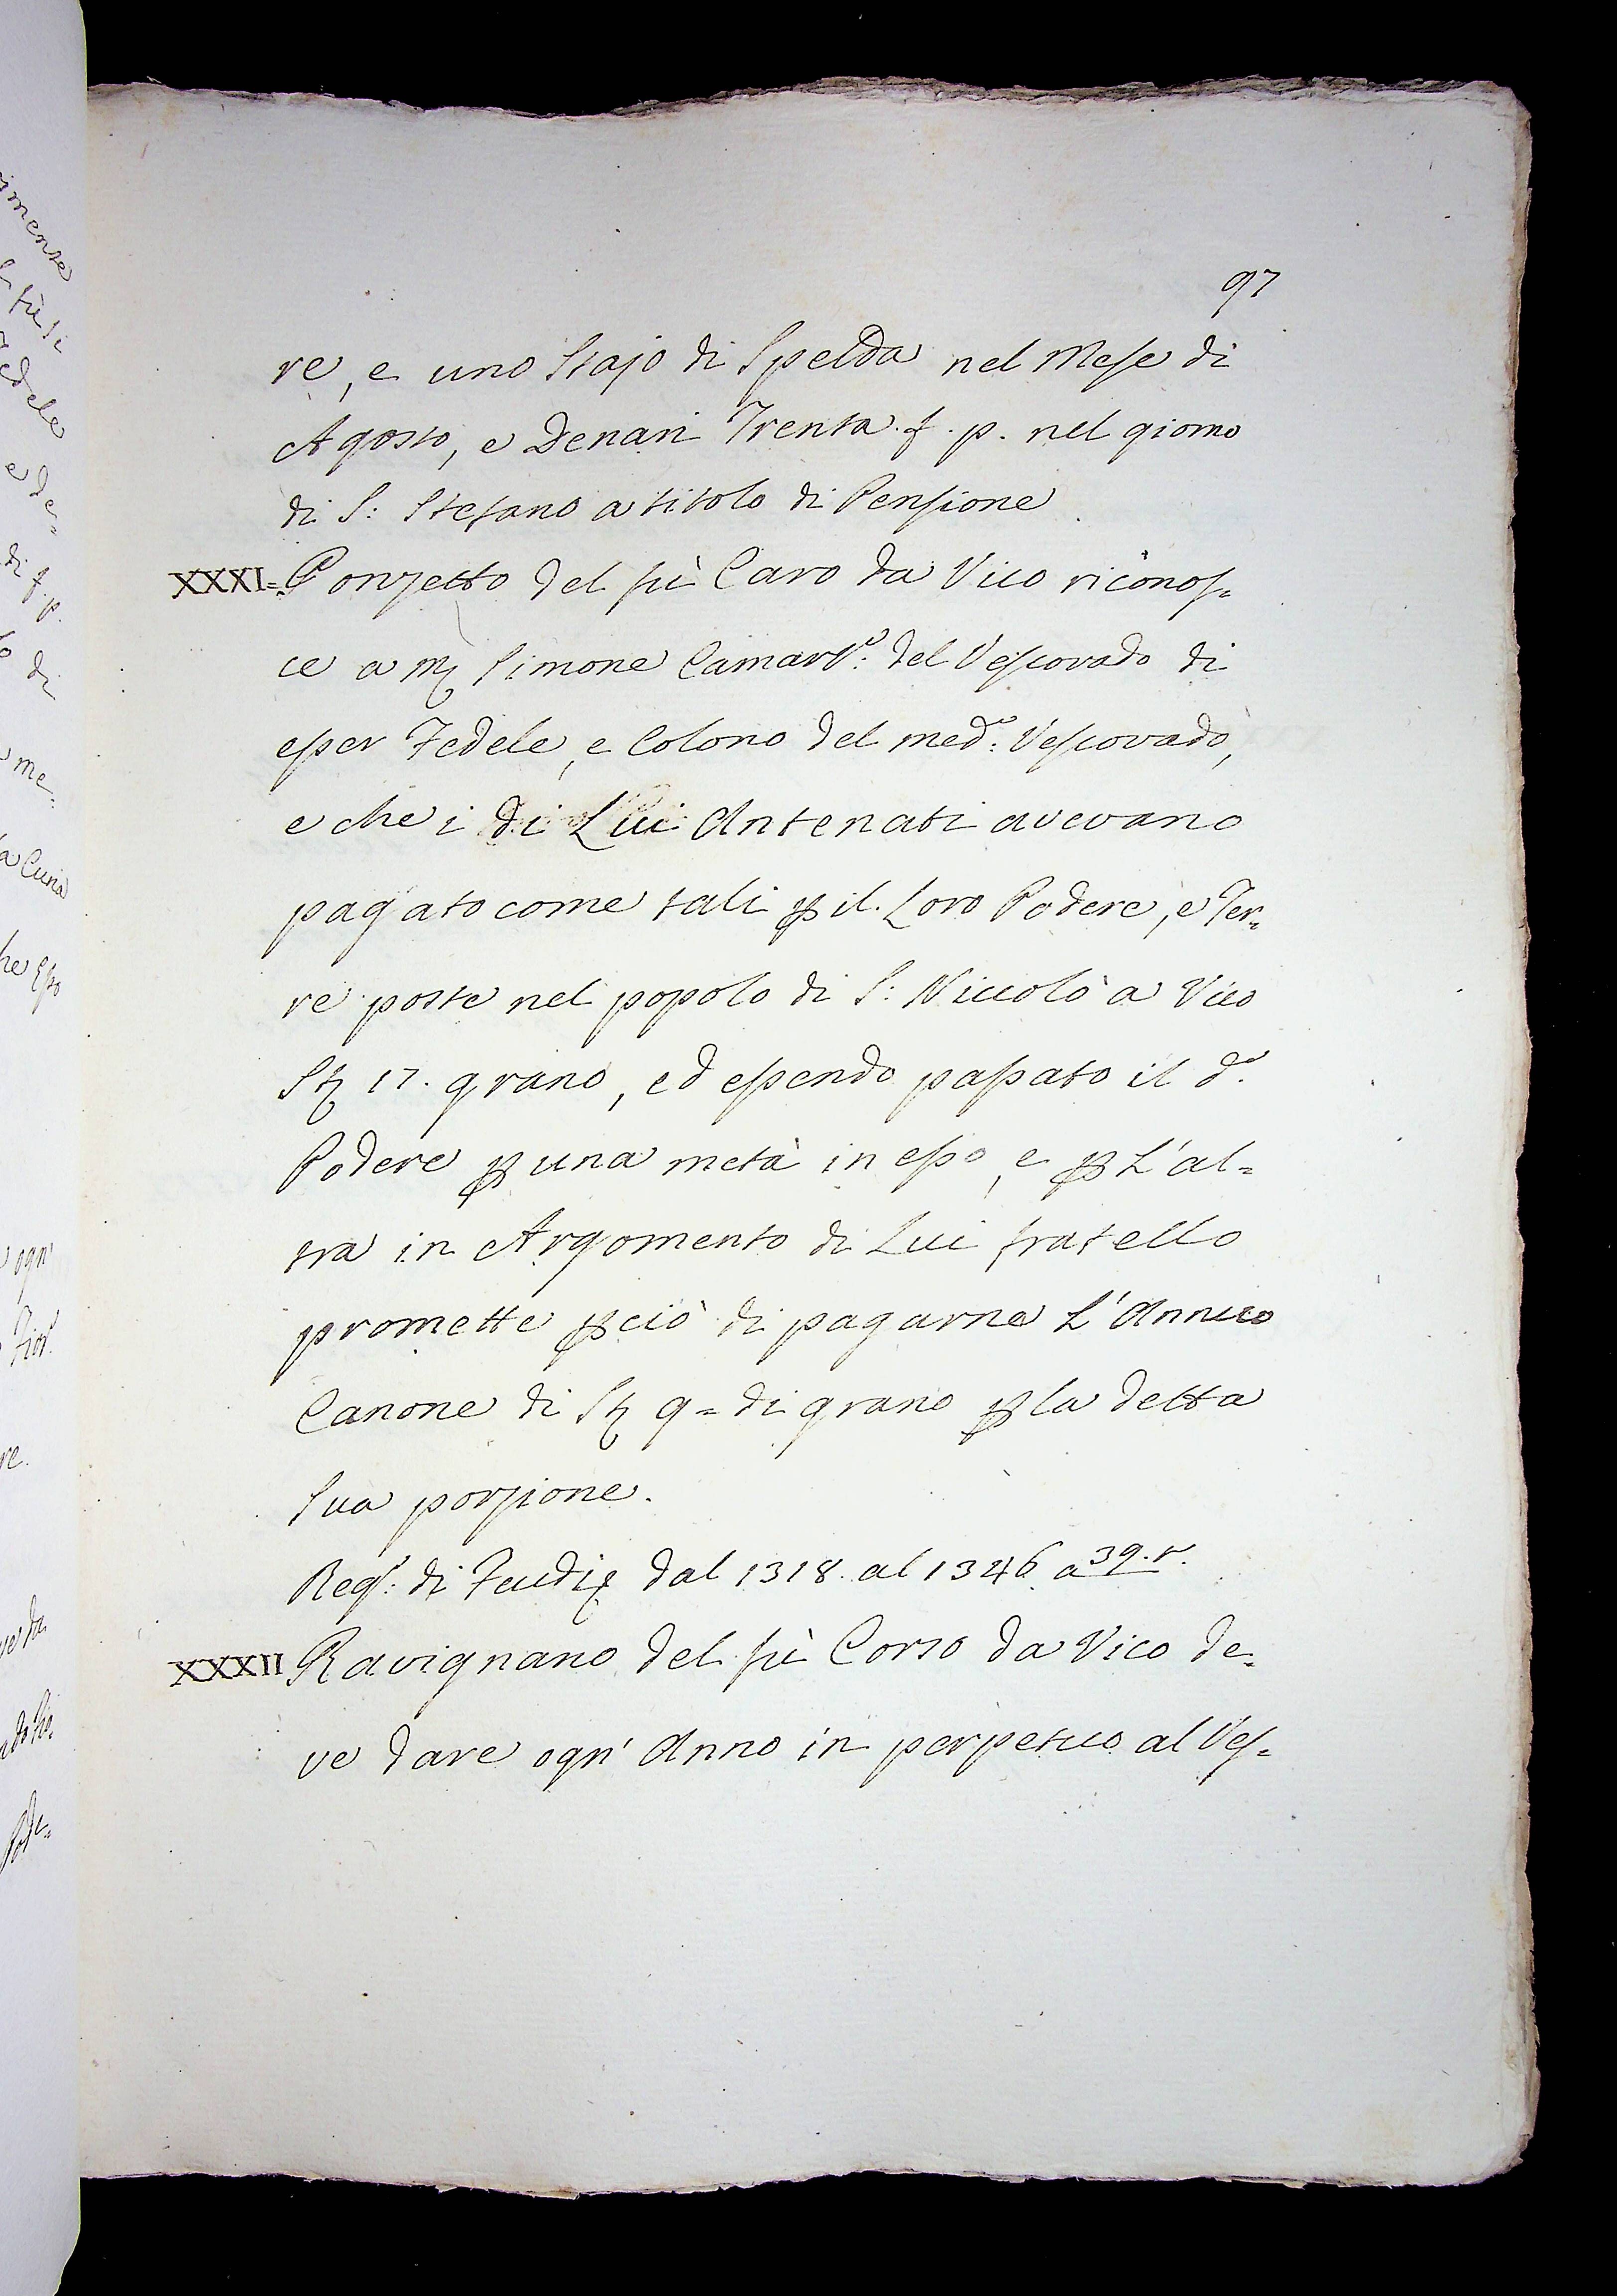 97
re, e uno Stajo di Spelda nel Mese di
Agosto, e Denari Trenta. f. p. nel giorno
di S: Stefano a titolo di Pensione
XXXI= Ponzetto del fù Caro da Vico riconos=
ce a Mẛ Simone Camarl.º del Vescovado di
esser Fedele, e Colono del med.º Vescovado,
e che i di Lui Antenati avevano
pagato come tali ꝑ il Loro Podere, e Ter=
re poste nel popolo di S: Niccolò a Vico
St 17. grano, ed essendo passato il d.º
Podere ꝑ una metà in esso, e ꝑ L'al=
tra in Argomento di Lui fratello
promette ꝑciò di pagarne L'Annuo
Canone di St 9= di grano ꝑ la detta
Sua porzione.
Reg.º di Feudi dal 1318. al 1346. a 39. r.
XXXII Ravignano del fù Corso da Vico de=
ve dare ogn' Anno in perpetuo al Ves=